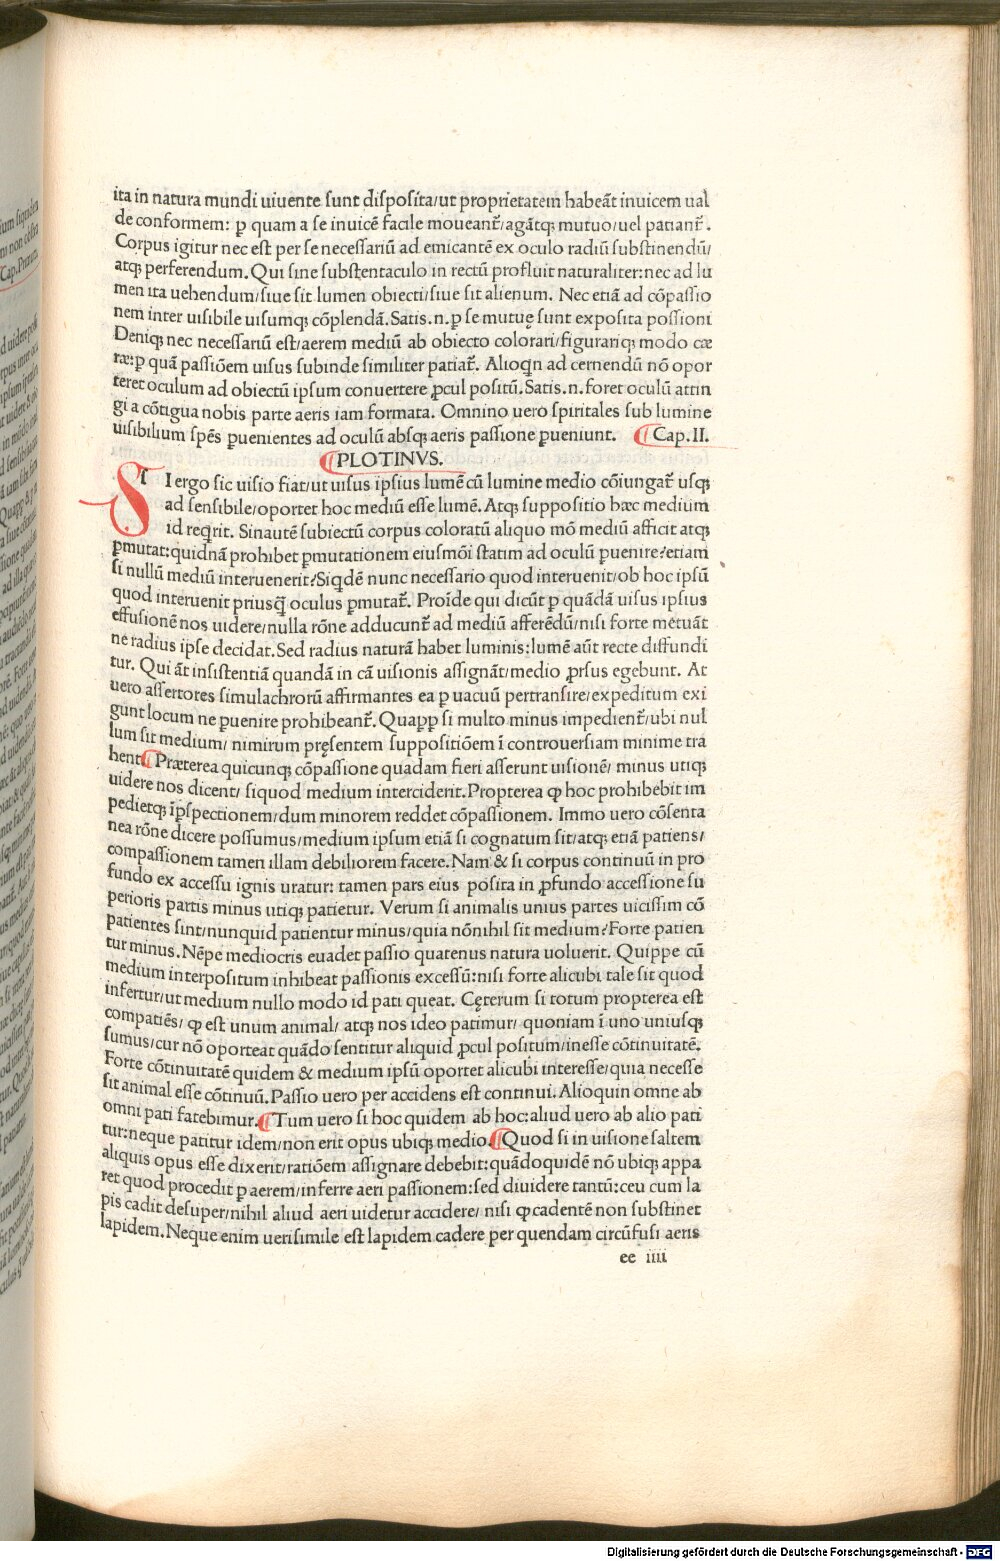 ita in natura mundi uiuente sunt disposita/ut proprietatem habeāt inuicem ual
de conformem: ꝑ quam a se inuicē facile moueant᷑/agātqꝫ mutuo/uel patiant᷑.
Corpus igitur nec est per se necessariū ad emicantē ex oculo radiū substinendū/
atqꝫ perferendum. Qui sine substentaculo in rectū profluit naturaliter: nec ad lu
men ita uehendum/siue sit lumen obiecti/siue sit alienum. Nec etiā ad cōpassio
nem inter uisibile uisumqꝫ cōplendā. Satis .n. ꝑ se mutuę sunt exposita passioni
Deniqꝫ nec necessariū est/aerem mediū ab obiecto colorari/figurariqꝫ modo cæ
ræ: ꝑ quā passiōem uisus subinde similiter patiat᷑. Alioqn ad cernendū nō opor
teret oculum ad obiectū ipsum conuertere ꝓcul positū. Satis .n. foret oculū attin
gi a cōtigua nobis parte aeris iam formata. Omnino uero spiritales sub lumine
uisibilium spēs ꝑuenientes ad oculū absqꝫ aeris passione ꝑueniunt. ¶ Cap. II.
¶ PLOTINVS.
SI ergo sic uisio fiat/ut uisus ipsius lumē cū lumine medio cōiungat᷑ usqꝫ
ad sensibile/oportet hoc mediū esse lumē. Atqꝫ suppositio hæc medium
id reqrit. Sinautē subiectū corpus coloratū aliquo mō mediū afficit atqꝫ
ꝑmutat: quidnā prohibet ꝑmutationem eiusmōi statim ad oculū ꝑuenire? etiam
si nullū mediū interuenerit? Siqdē nunc necessario quod interuenit/ob hoc ipsū
quod interuenit priusq̄ oculus ꝑmutat᷑. Proīde qui dicūt ꝑ quādā uisus ipsius
effusionē nos uidere/nulla rōne adducunt᷑ ad mediū afferēdū/nisi forte metuāt
ne radius ipse decidat. Sed radius naturā habet luminis: lumē aūt recte diffundi
tur. Qui āt insistentiā quandā in cā uisionis assignāt/medio ꝓrsus egebunt. At
uero assertores simulachrorū affirmantes ea ꝑ uacuū pertransire/expeditum exi
gunt locum ne ꝑuenire prohibeant᷑. Quaꝓꝑ si multo minus impedient᷑/ubi nul
lum sit medium/ nimirum pręsentem suppositiōem ī controuersiam minime tra
hent. ¶ Præterea quicunqꝫ cōpassione quadam fieri asserunt uisionē/ minus utiqꝫ
uidere nos dicent/ siquod medium interciderit. Propterea ꝙ hoc prohibebit im
pedietqꝫ īꝑspectionem/dum minorem reddet cōpassionem. Immo uero cōsenta
nea rōne dicere possumus/medium ipsum etiā si cognatum sit/atqꝫ etiā patiens/
compassionem tamen illam debiliorem facere. Nam & si corpus continuū in pro
fundo ex accessu ignis uratur: tamen pars eius posita in ꝓfundo accessione su
perioris partis minus utiqꝫ patietur. Verum si animalis unius partes uicissim cō
patientes sint/nunquid patientur minus/quia nōnihil sit medium? Forte patien
tur minus. Nēpe mediocris euadet passio quatenus natura uoluerit. Quippe cū
medium interpositum inhibeat passionis excessū: nisi forte alicubi tale sit quod
infertur/ut medium nullo modo id pati queat. Cęterum si totum propterea est
compatiēs/ ꝙ est unum animal/ atqꝫ nos ideo patimur/ quoniam ī uno uniusqꝫ
sumus/cur nō oporteat quādo sentitur aliquid ꝓcul positum/inesse cōtinuitatē.
Forte cōtinuitatē quidem & medium ipsū oportet alicubi interesse/quia necesse
sit animal esse cōtinuū. Passio uero per accidens est continui. Alioquin omne ab
omni pati fatebimur. ¶ Tum uero si hoc quidem ab hoc: aliud uero ab alio pati
tur: neque patitur idem/non erit opus ubiqꝫ medio. ¶ Quod si in uisione saltem
aliquis opus esse dixerit/ratiōem assignare debebit: quādoquidē nō ubiqꝫ appa
ret quod procedit ꝑ aerem/inferre aeri passionem: sed diuidere tantū: ceu cum la
pis cadit desuper/nihil aliud aeri uidetur accidere/ nisi ꝙ cadentē non substinet
lapidem. Neque enim uerisimile est lapidem cadere per quendam circūfusi aeris
ee iiii
Digitalisierung gefördert durch die Deutsche Forschungsgemeinschaft - DFG